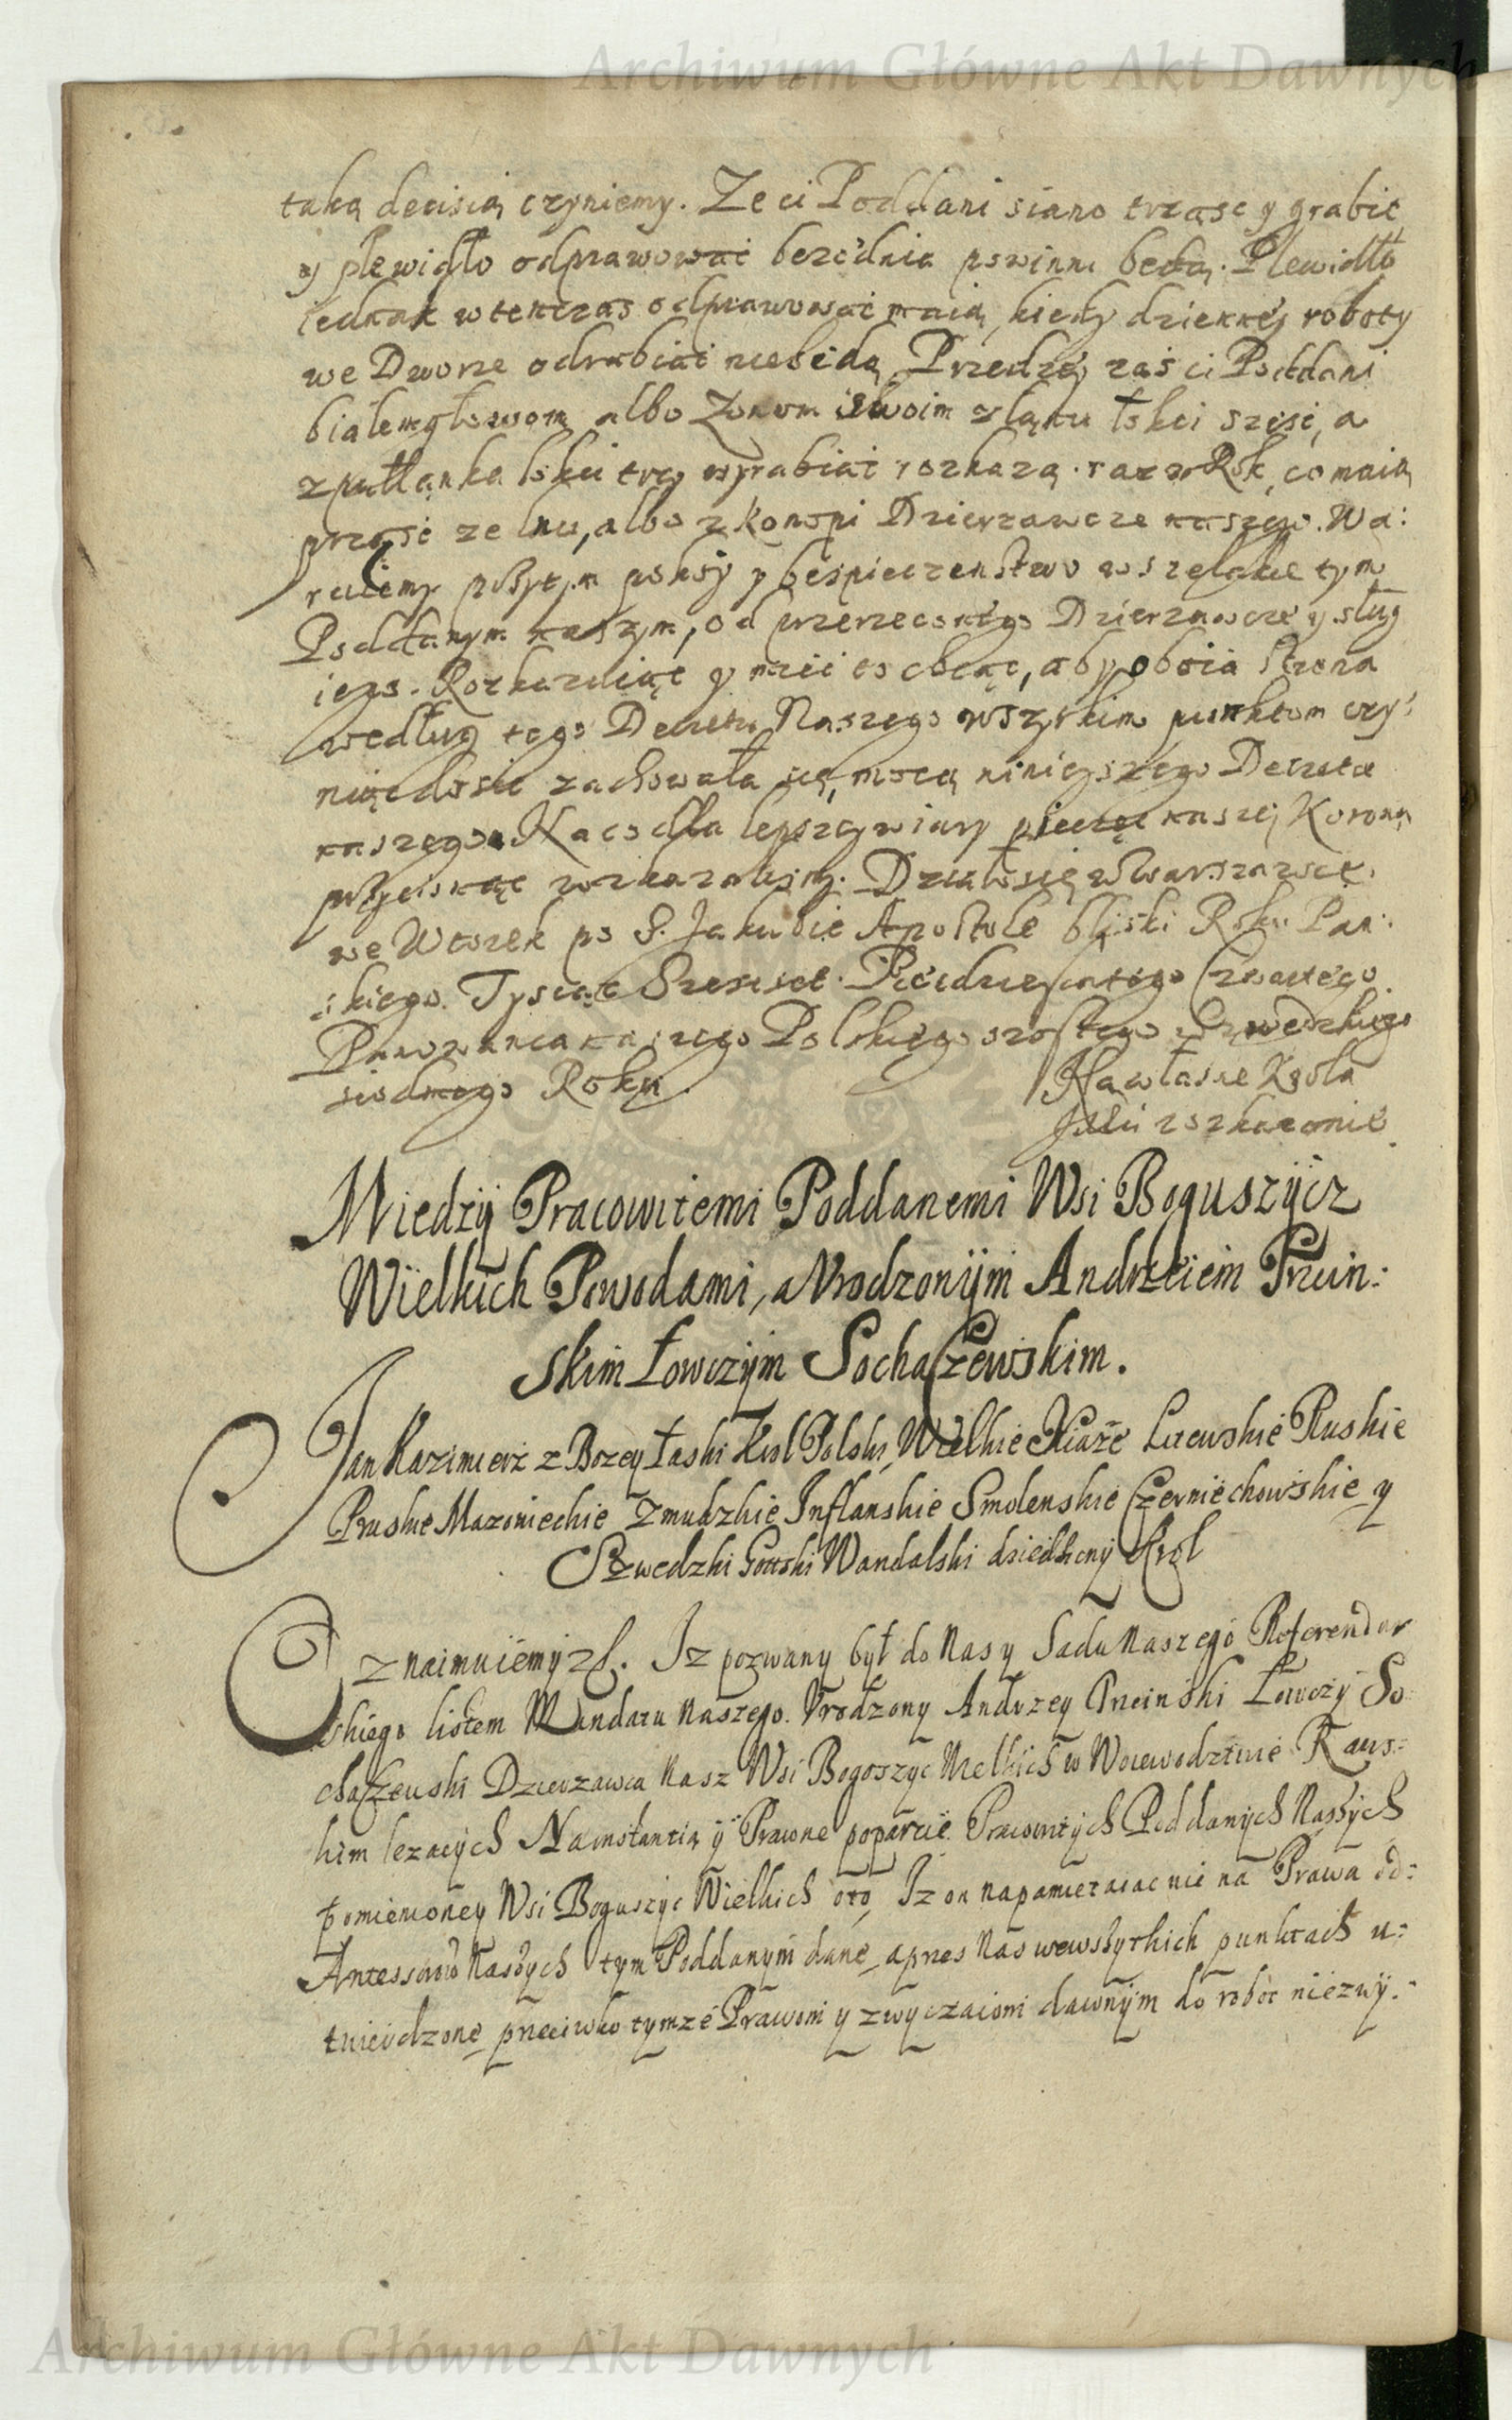 Archiwum Główne Akt Dawnych
taką decisią czyniemy. Ze ci Poddani siano trząsc y grabic
y plewidło odprawowac bezednia powinni będą. Plewidło
iednak wtenczas odprawowac maią, kiedy dzienney roboty
we Dworze odrabiac niebędą. Przedzey zaś ci Poddani
białemgłowom albo Zonom swoim zlanu łokci szesc, a
zpułłanka łokci trzy wyrabiac rozkazą raz w Rok, co maią
prząsc ze lnu, albo z konopi Dzierzawcze naszego. Wa:
ruiemy przytym pokoy y bespieczenstwo wszelakie tym
Poddanym naszym, od przerzeconego Dzierzawcze y sług
iego. Rozkazuiąc y miec to chcąc, aby oboia Strona
według tego Decretu Naszego wszystkim punktom czy:
niąc dosic zachowała się, mocą ninieyszego Decretu
naszego. Na co dla lepszey wiary pieczęc naszę Koronną
przycisnąc rozkazalismy. Działo się w Warszawie.
we Wtorek po S. Jakubie Apostole bliski Roku Pan:
skiego. Tysiąc Szescset Piecdziesiatego Czwartego.
Panowania naszego Polskiego szostego Szwedzkiego
siodmego Roku. Na własne Krola
Jmci roskazanie
Miedzÿ Pracowitemi Poddanemi Wsi Boguszÿcz
Wielkich Powodami, a Vrodzonÿm Andrzeiem Przin:
skim Łowczÿm Sochaczewskim.
Jan Kazimierz z Bozey Łaski Krol Polski, Wielkie Xiąże Litewskie Ruskie
Pruskie Mazowieckie Zmudzkie Inflanskie Smolenskie Czerniechowskie y
Szwedzki Gottski Wandalski dziedzicny Krol
Oznaimuiemÿ zl. Iz pozwany był do Nas y Sadu Naszego Referendar
skiego listem Mandatu Naszego. Vrodzony Andrzey Prcinski Łowczy So
chaczewski Dzierzawca Nasz Wsi Bogoszyc Wielkich w Woiewodztwie Raws:
kim lezacych Na instantią ÿ Prawne poparcie Pracowitych Poddanych Naszych
pomienioney Wsi Boguszyc Wielkich oto, Iz on napamietaiac nic na Prawa od:
Antessorow Naszych tym Poddanym dane, a przes Nas wewszytkich punktach u:
twierdzone, przeciwko tymze Prawom y zwyczaiom dawnym do robot niezwÿ:
Archiwum Główne Akt Dawnych